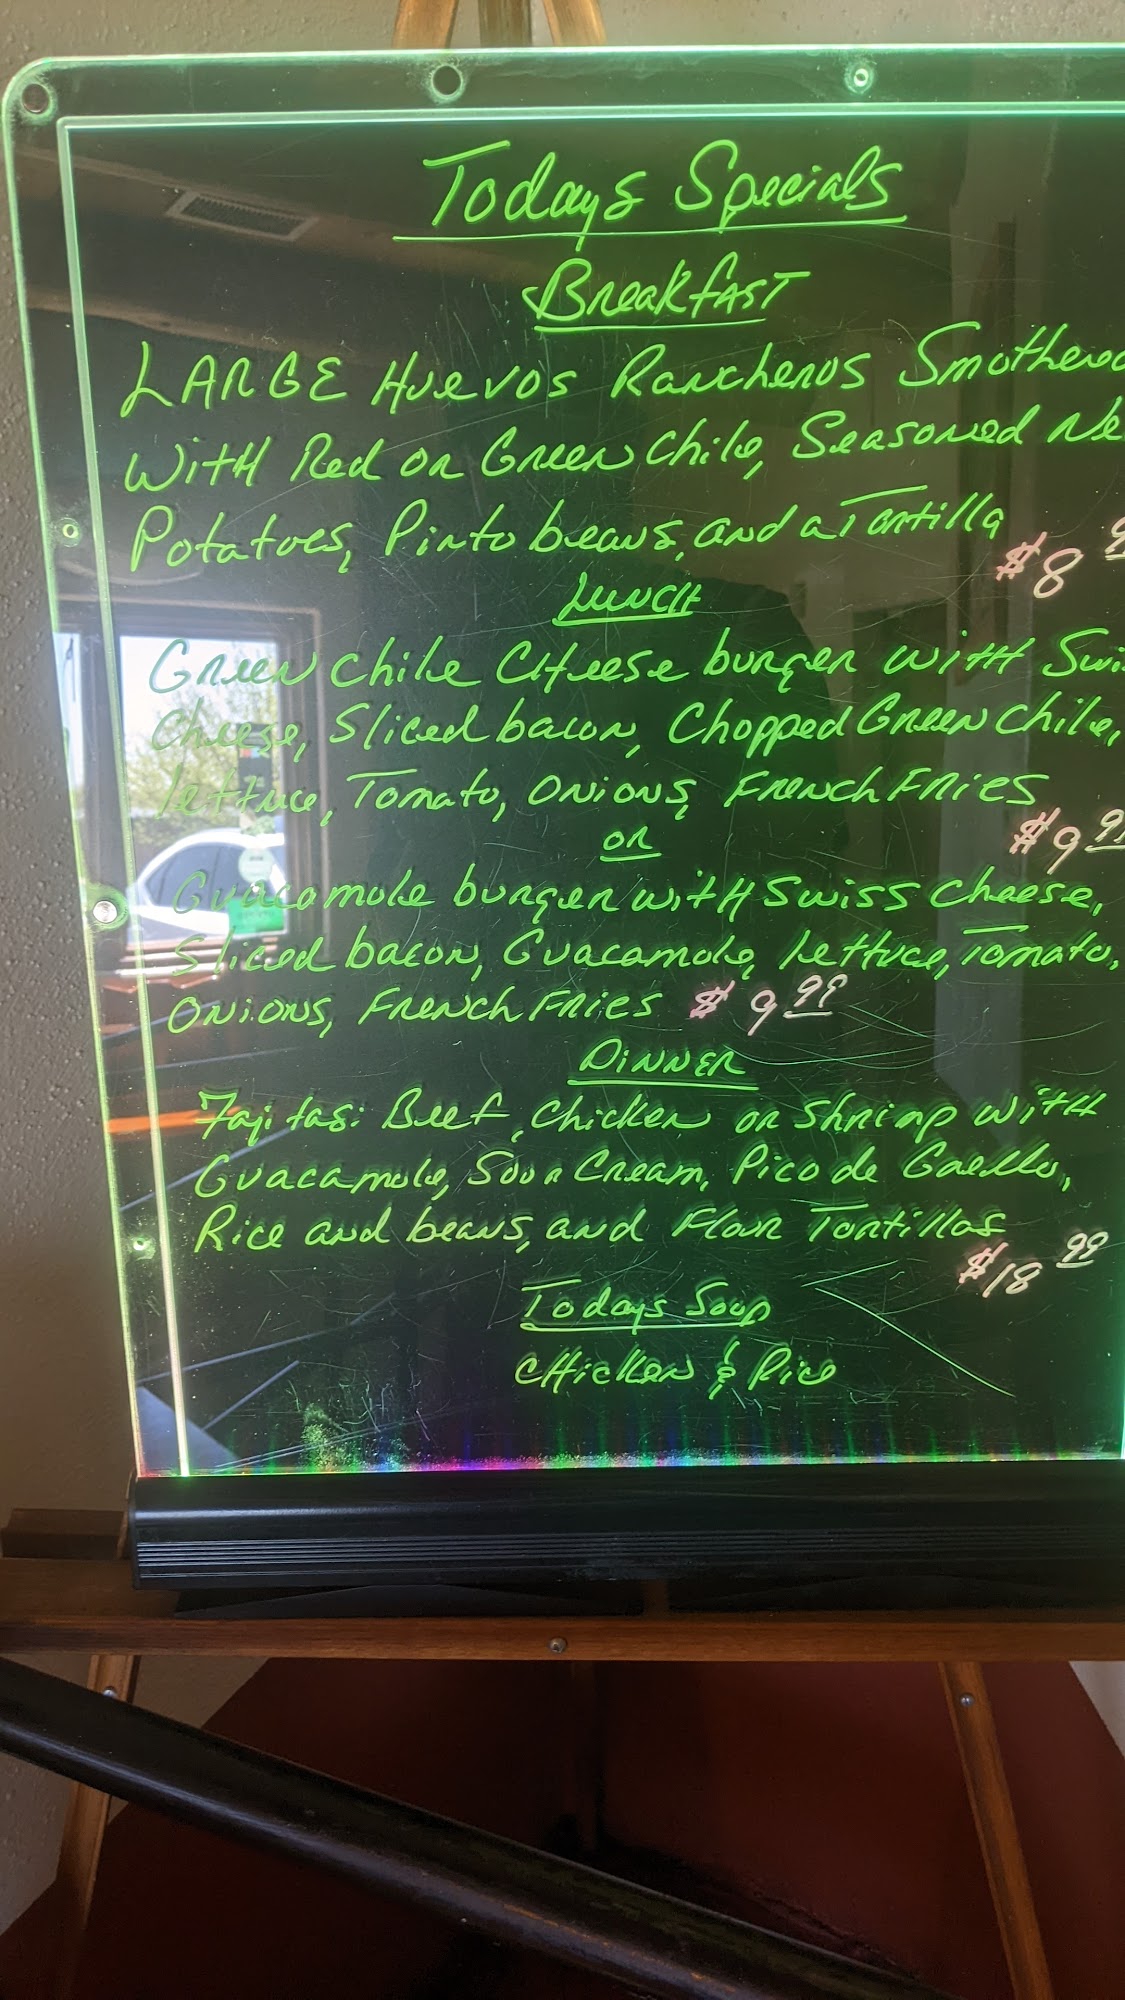 Todays Specials
Breakfast
LARGE Huevos Rancheros Smothered
With Red or Green Chile, Seasoned Ne
Potatoes, Pinto beans, and a Tortilla
$8
LUNCH
Green Chile Cheese burger with Swi
Cheese, Sliced bacon, Chopped Green Chile,
Lettuce, Tomato, Onions, French Fries
$9 99
OR
Guacamole burger with Swiss Cheese,
Sliced bacon, Guacamole, Lettuce, Tomato,
Onions, French Fries $9 99
DINNER
Fajitas: Beef, Chicken or Shrimp with
Guacamole, Sour Cream, Pico de Gaello,
Rice and beans, and Flour Tortillas
$18 99
Todays Soup
Chicken & Rice